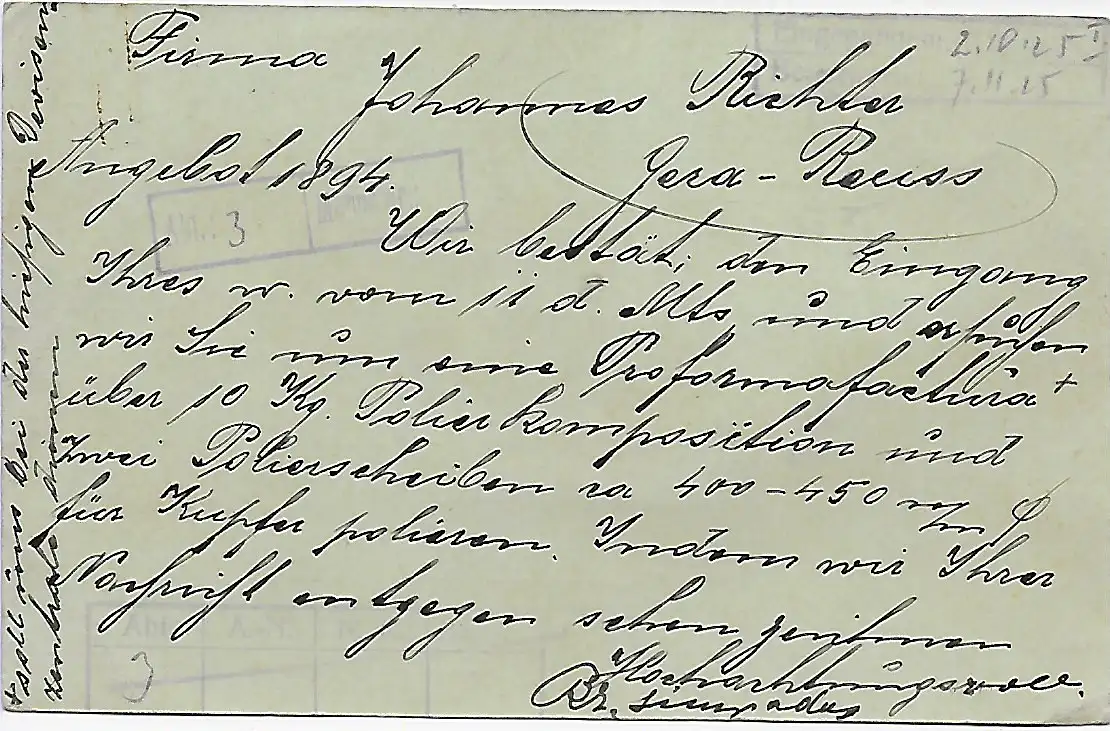 Firma
Johannes Richter
Gera-Reuss
Angebot 1894.
Wir bestät. den Eingang
Ihres w. vom 11 d. Mts, und
wir Sie nun eine Proformafactura +
über 10 Kg. Polierkomposition und
zwei Polierscheiben ca 400-450 m/m ∅
für Kupfer polieren. Indem wir Ihrer
Nachricht entgegen sehen zeichnen
Hochachtungsvoll.
Br.
+ soll uns bei der hiesigen Devisen
zentrale dienen
2.10.25 I
7.11.25
Abt. 3
Abt.
3